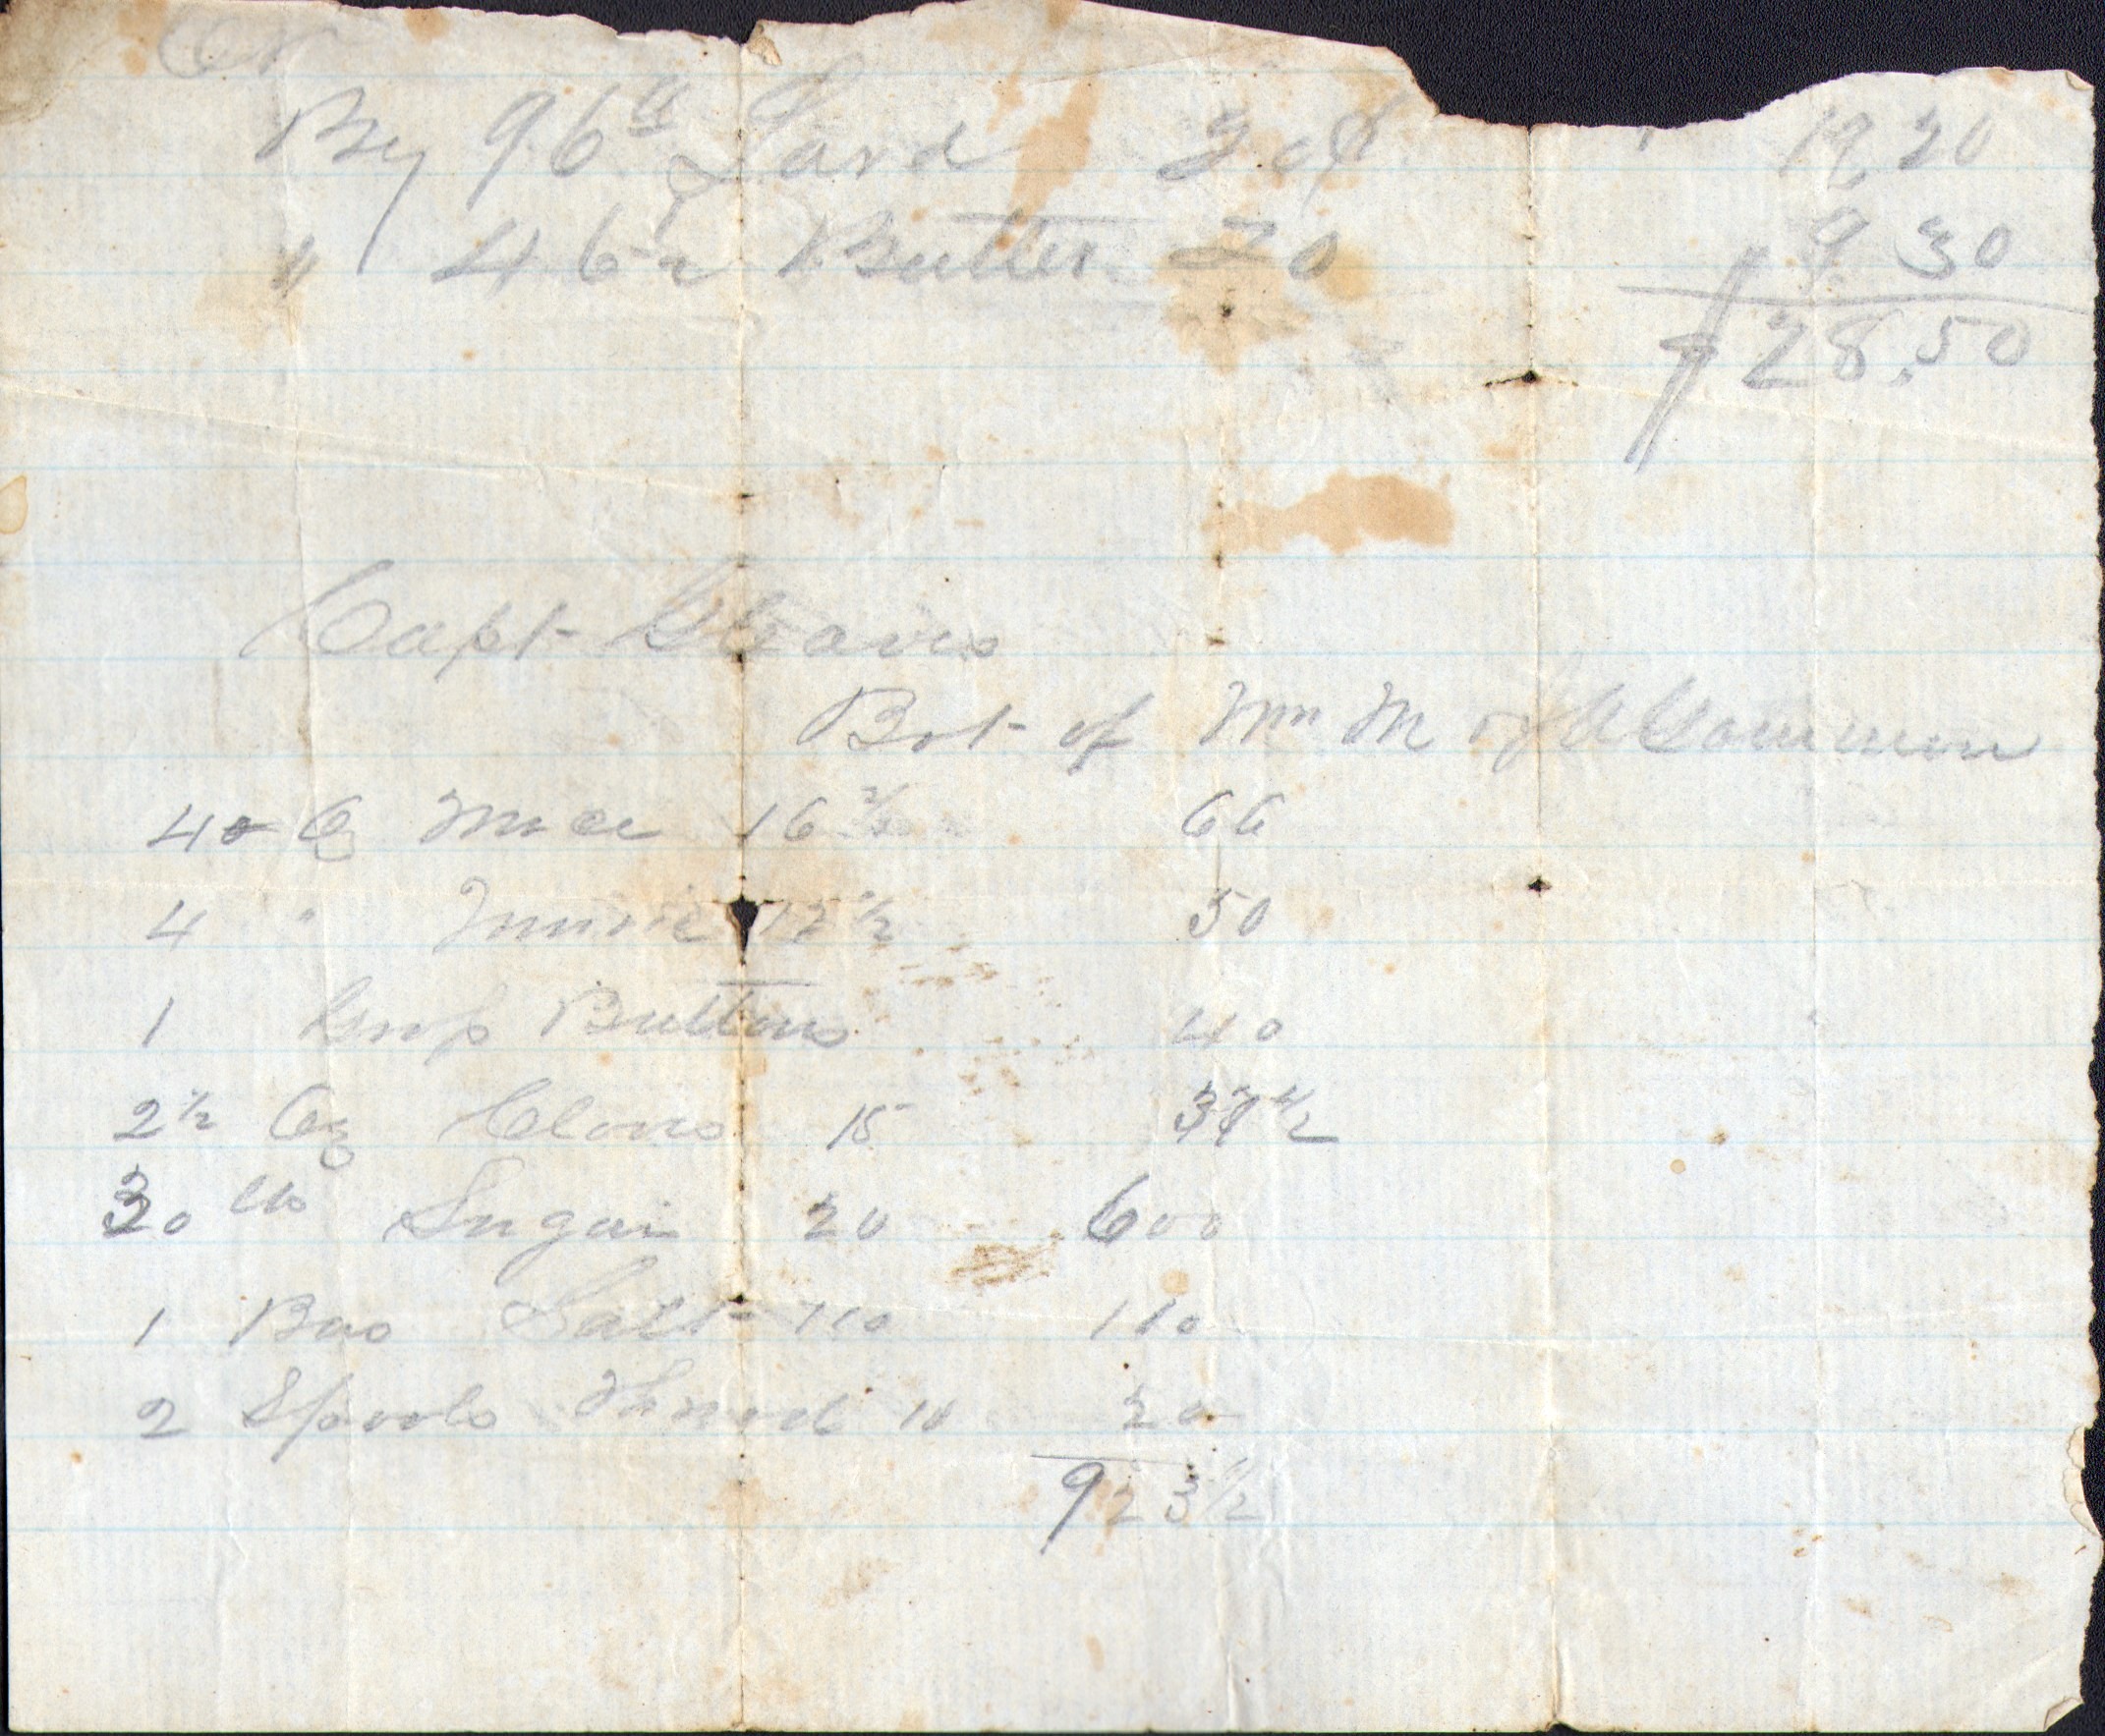 Cr
By 96 lb Lard 20¢ 19 20
" 46½ Butter 20 9 30
$28.50
Capt
Bot of Wm M
4 Oz Mace 16 ⅔ 66
4 " 12½ 50
1 Gross Buttons 40
2½ Oz Cloves 15 37½
30 lbs Sugar 20 600
1 Salt 110 110
2 Spools Thread 10 20
923½